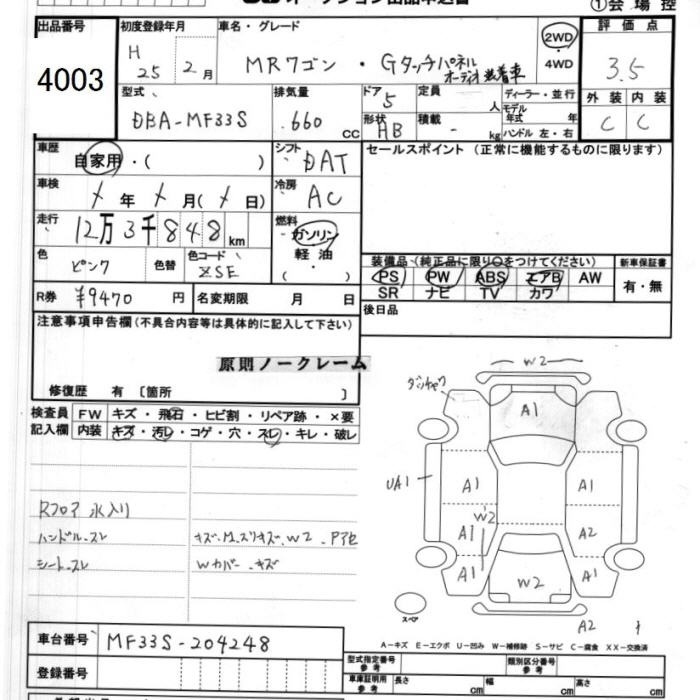 オークション出品申込書 ①会場控
出品番号 4003
初度登録年月 H 25 2月
車名・グレード MRワゴン・Gタッチパネル オーディオ装着車
2WD ・ 4WD
評価点 3.5
外装 内装 C C
型式 DBA-MF33S
排気量 660 cc
ドア 5 形状 HB
定員 人 積載 - kg
ディーラー・並行
モデル年式 年
ハンドル 左・右
車歴 自家用・( )
シフト DAT
セールスポイント (正常に機能するものに限ります)
車検 年 月( 日)
冷房 AC
走行 12万3千848km
燃料 ガソリン 軽油 ( ・ )
色 ピンク 色替 色コード ZSE
装備品 (純正品に限り○をつけてください) 新車保証書
PS PW ABS エアB AW 有・無
SR ナビ TV カワ
R券 ¥9470円 名変期限 月 日
後日品
注意事項申告欄(不具合内容等は具体的に記入して下さい)
原則ノークレーム
修復歴 有 〔箇所 〕
検査員記入欄 FW キズ・飛石・ヒビ割・リペア跡・×要
内装 キズ・汚レ・コゲ・穴・スレ・キレ・破レ
Rフロア 水入り
ハンドルスレ
シートスレ
W2
A1
UA1 A1 A1
W2
A1 A2
A1 W2 A1
スペア A2
A-キズ E-エクボ U-凹み W-補修跡 S-サビ C-腐食 XX-交換済
車台番号 MF33S-204248
登録番号
型式指定番号参考 類別区分番号参考
車庫証明用参考 長さ cm 幅 cm 高さ cm